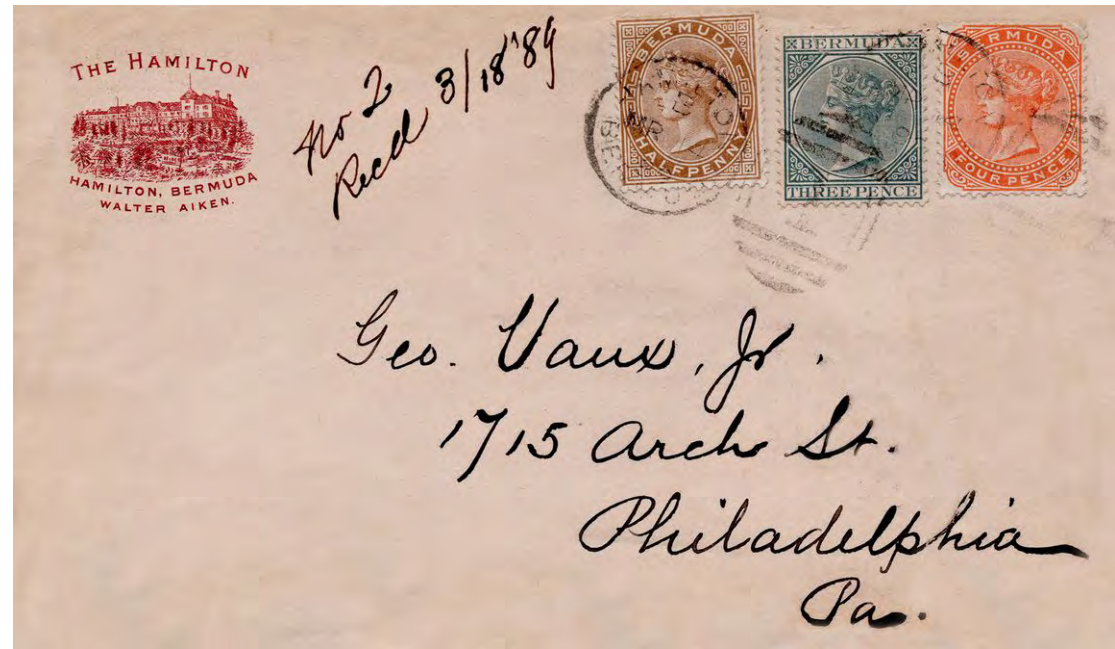 THE HAMILTON
HAMILTON, BERMUDA
WALTER AIKEN.
No 2
Recd 3/18 '89
BERMUDA
HALFPENNY
BERMUDA
THREE PENCE
BERMUDA
FOUR PENCE
Geo. Vaux, Jr.
1715 Arch St.
Philadelphia
Pa.